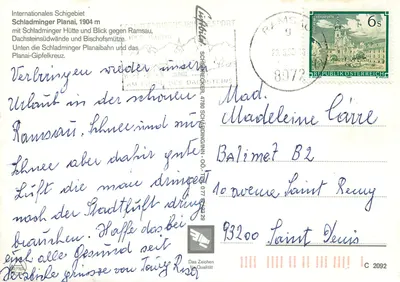 Internationales Schigebiet
Schladminger Planai, 1904 m
mit Schladminger Hütte und Blick gegen Ramsau,
Dachsteinsüdwände und Bischofsmütze.
Unten die Schladminger Planaibahn und das
Planai-Gipfelkreuz.
Verbringen wieder unsern
Urlaub in der schönen
Ramsau, Schnee und nur
Schnee aber dafür gute
Luft die man dringend
nach der Stadtluft
brauchen. Hoffe das bei
euch alle Gesund seit
Herzliche grüsse von
RAMSAU
8972
6 S
REPUBLIK ÖSTERREICH
Mad.
Madeleine Carre
Batimet B2
10 avenue Saint Remy
93200 Saint Denis
Das Zeichen
für Qualität
C 2092